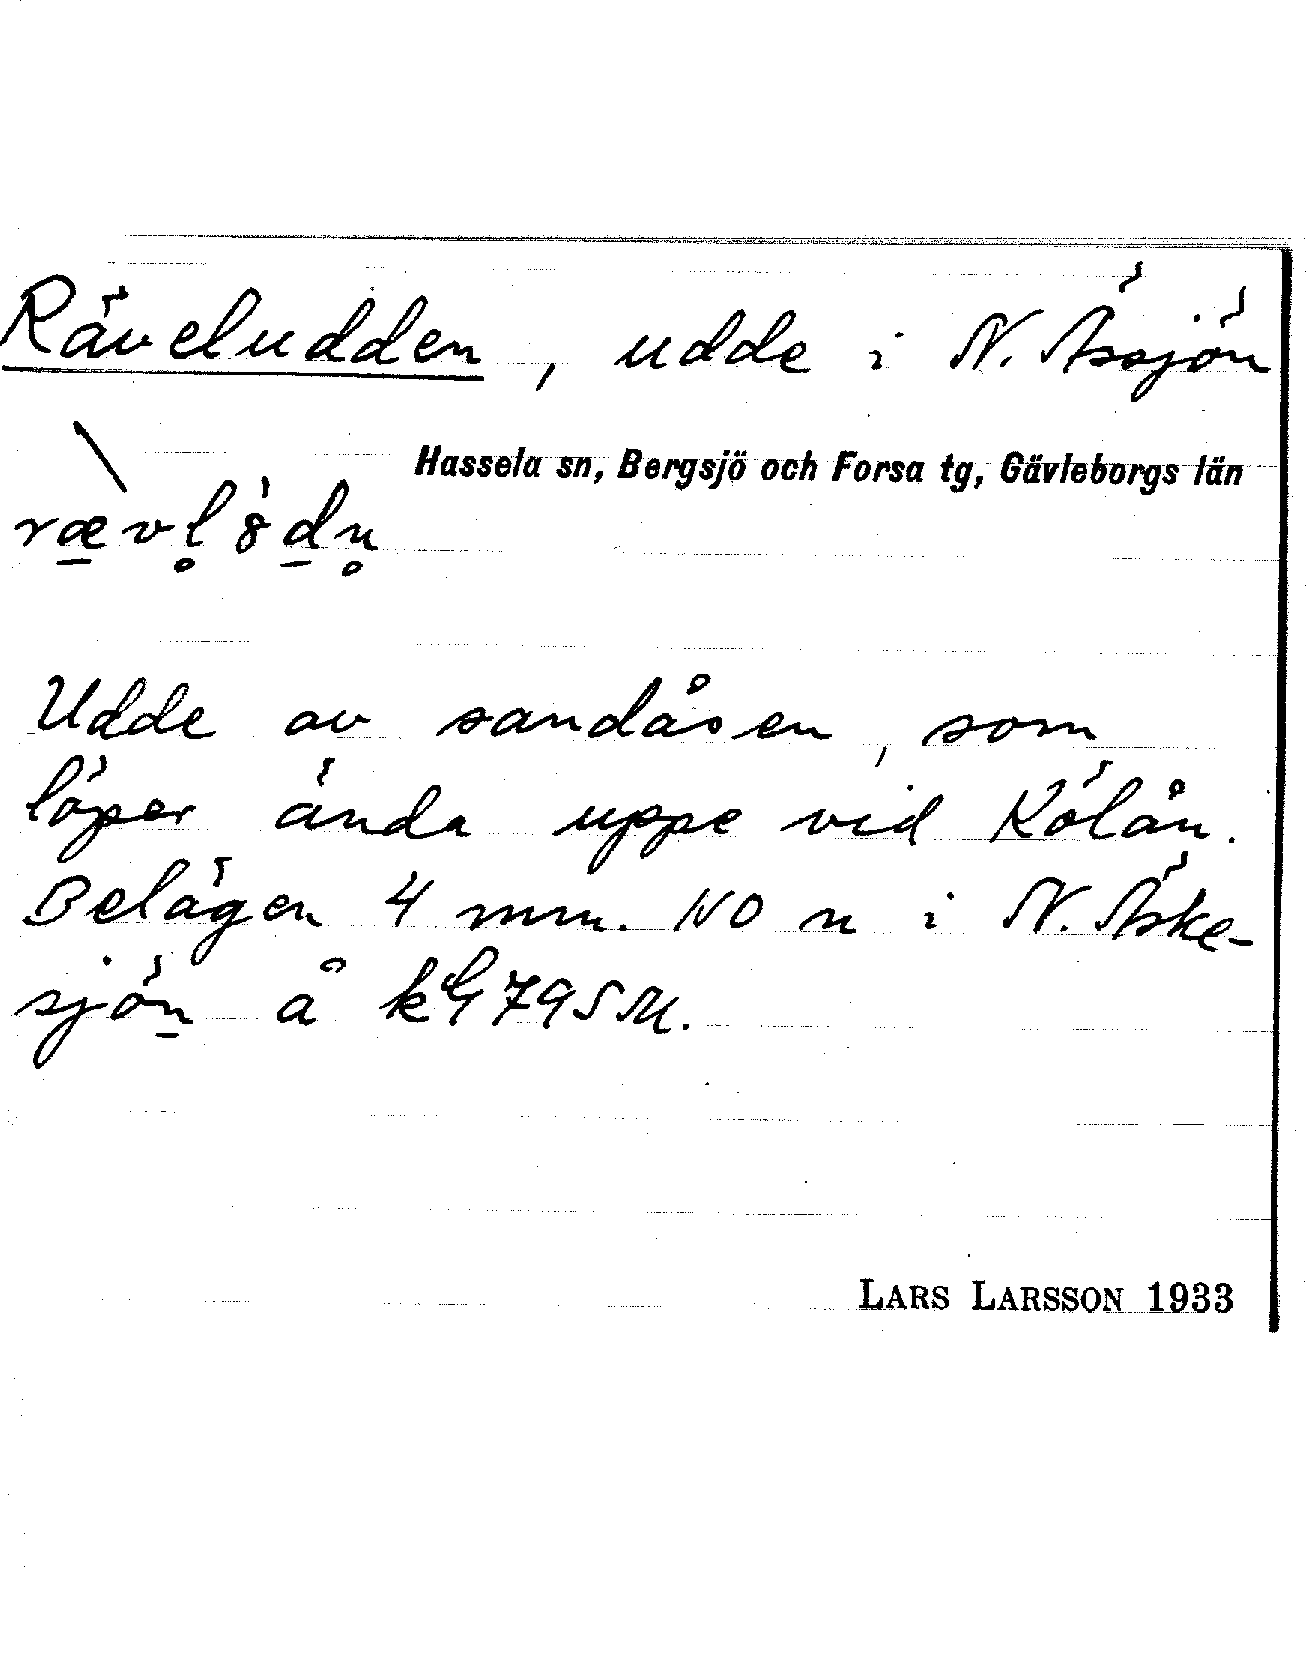 Räveludden, udde i N. Ässjön
Hassela sn, Bergsjö och Forsa tg, Gävleborgs län
rævl̥ȣ̀dn̥
Udde av sandåsen, som
löper ända uppe vid Kölån.
Belägen 4 mm. NO n i N. Äske-
sjön å kG795M.
LARS LARSSON 1933